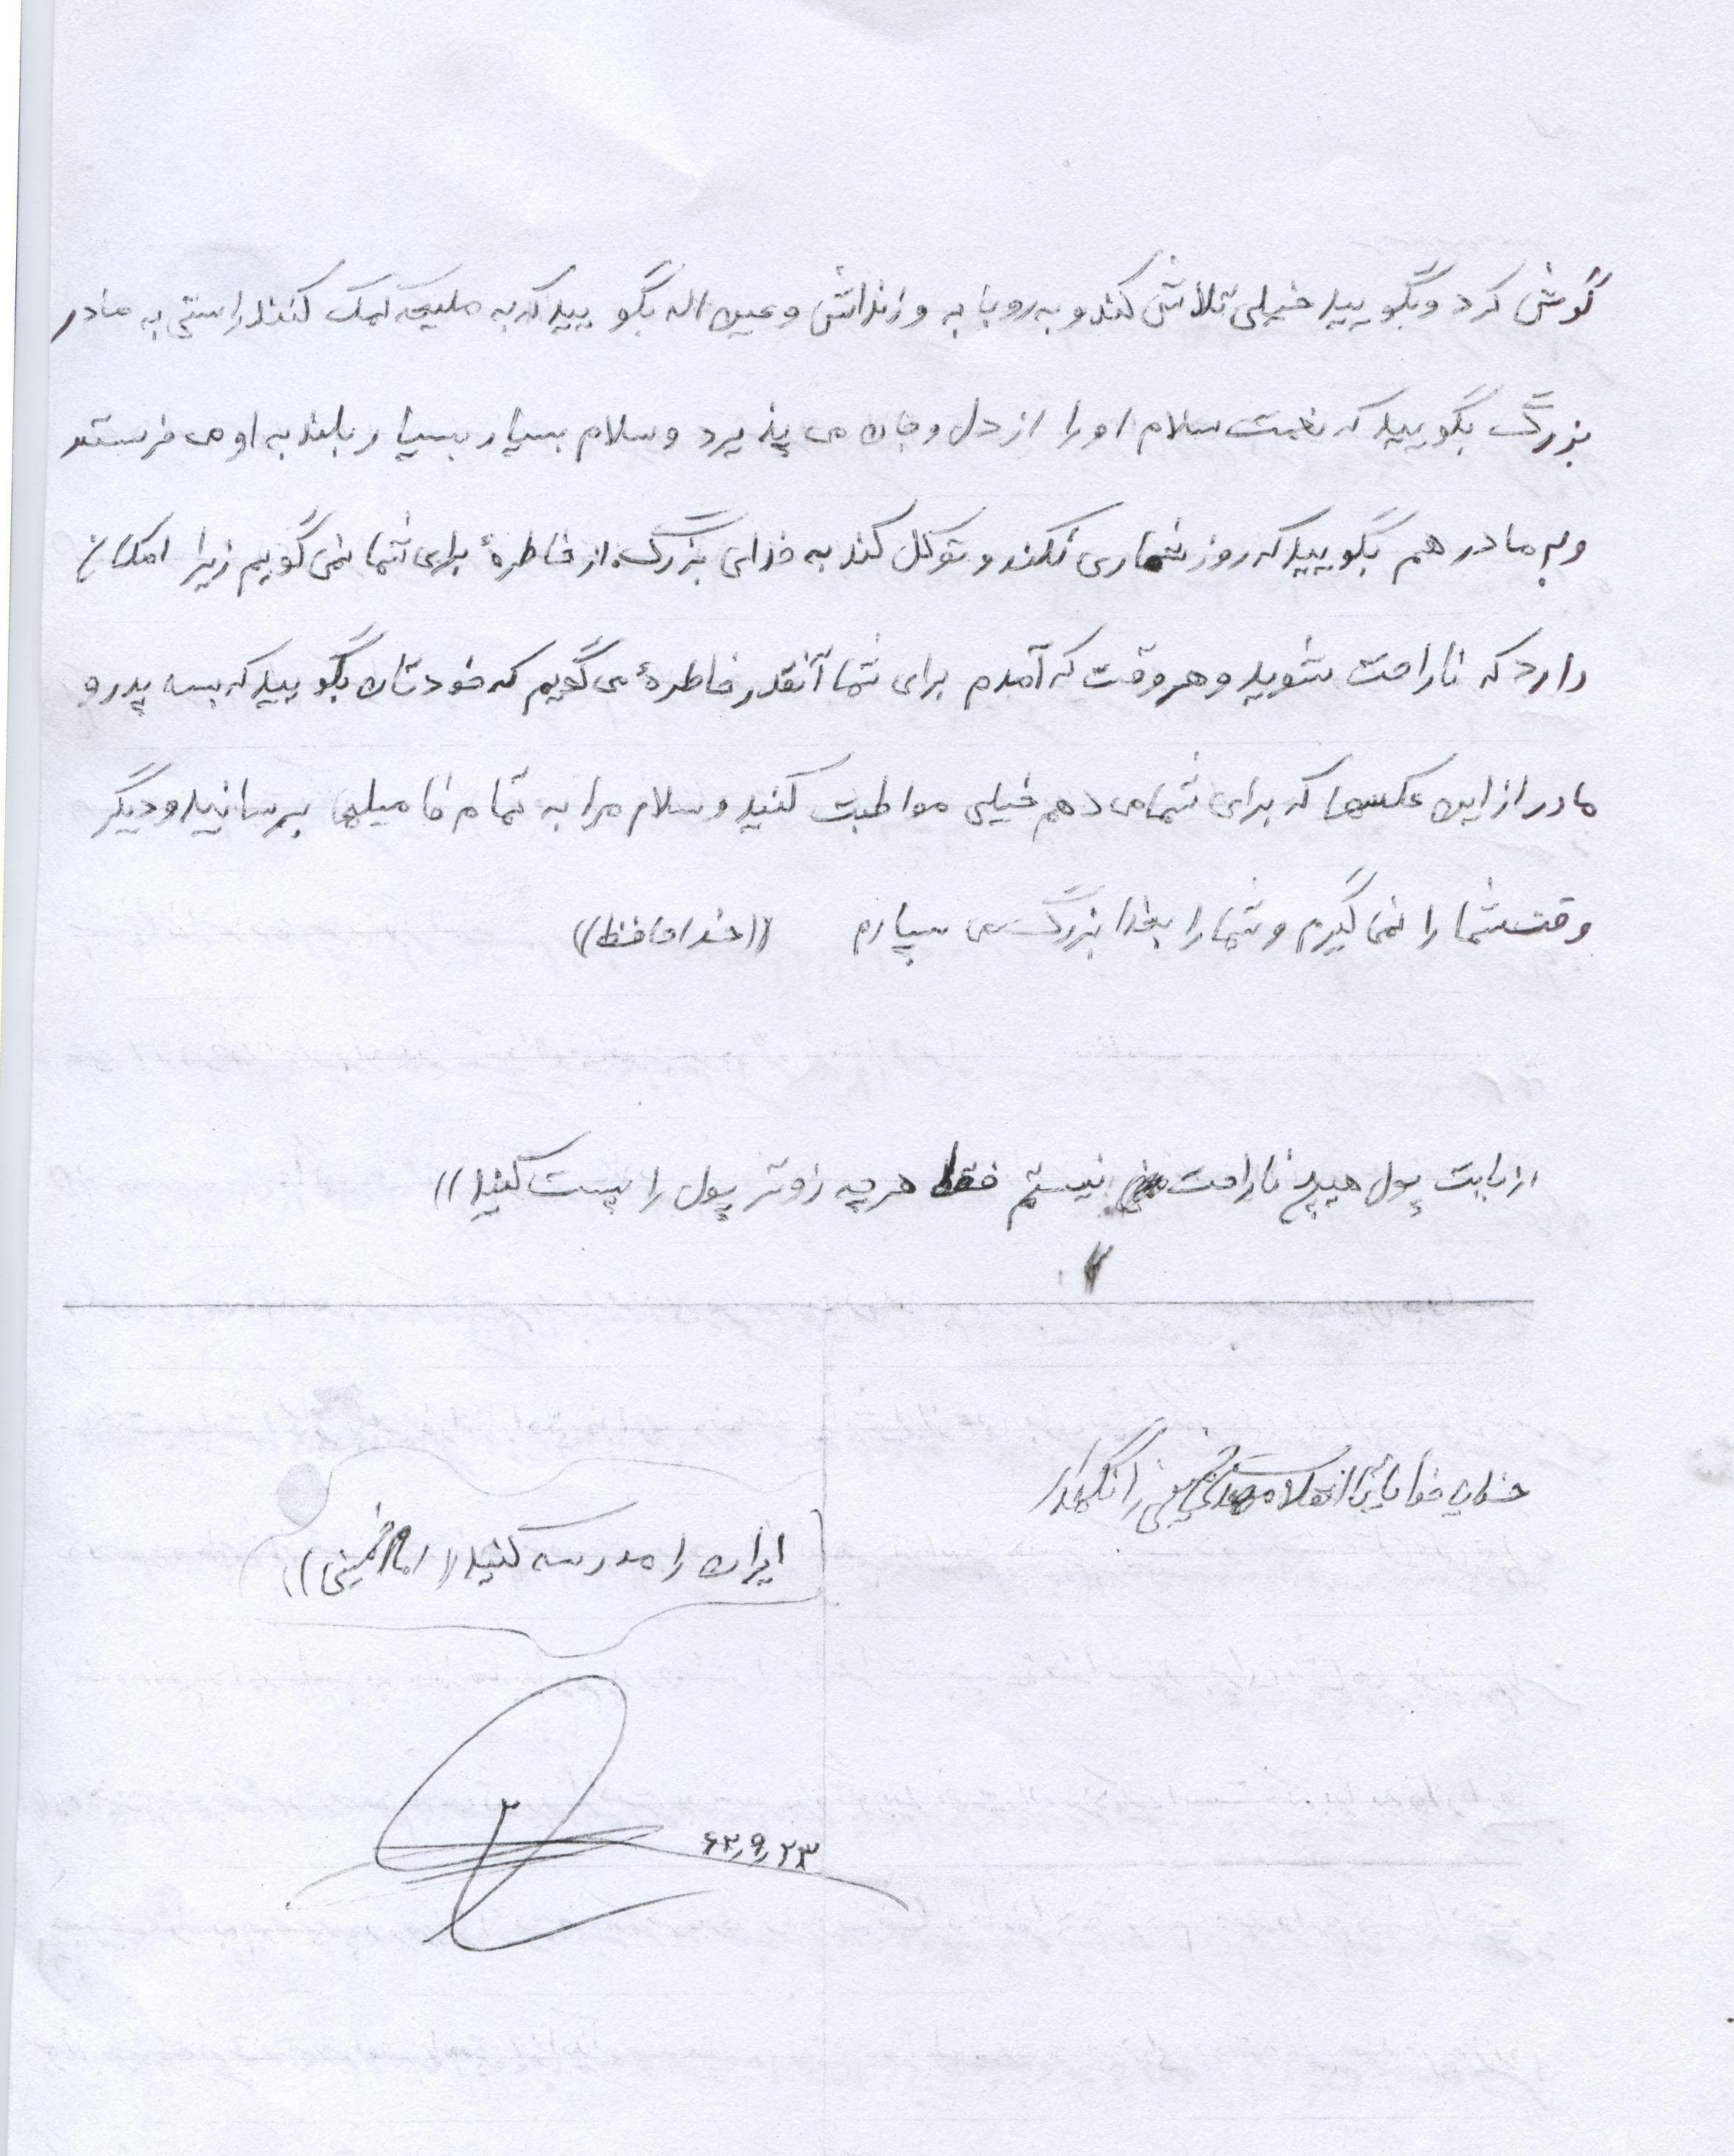 گوش کرد و بگویید خیلی تلاش کند و به رویا به و زنداش و عین اله بگویید که به ملیحه کمک کنند راستی به مادر
بزرگ بگویید که نعمت سلام او را از دل و جان می پذیرد و سلام بسیار بسیار بلند به او می فرستد
و به مادر هم بگویید که روز شماری نکند و توکل کند به خدای بزرگ. از خاطرهٔ برای شما نمی گویم زیرا امکان
دارد که ناراحت شوید و هر وقت که آمدم برای شما آنقدر خاطرهٔ می گویم که خودتان بگویید که بسه پدر و
مادر از این عکسها که برای شما می دهم خیلی مواطبت کنید و سلام مرا به تمام فامیلها برسانید و دیگر
وقت شما را نمی گیرم و شما را بخدا بزرگ می سپارم ((خداحافظ))
از بابت پول هیچ ناراحت نیستم فقط هر چه زوتر پول را پست کنید))
خدایا خدایا تا انقلاب مهدی خمینی را نگهدار
ایران را مدرسه کنید ((امام خمینی))
۶۲٫۹٫۲۳